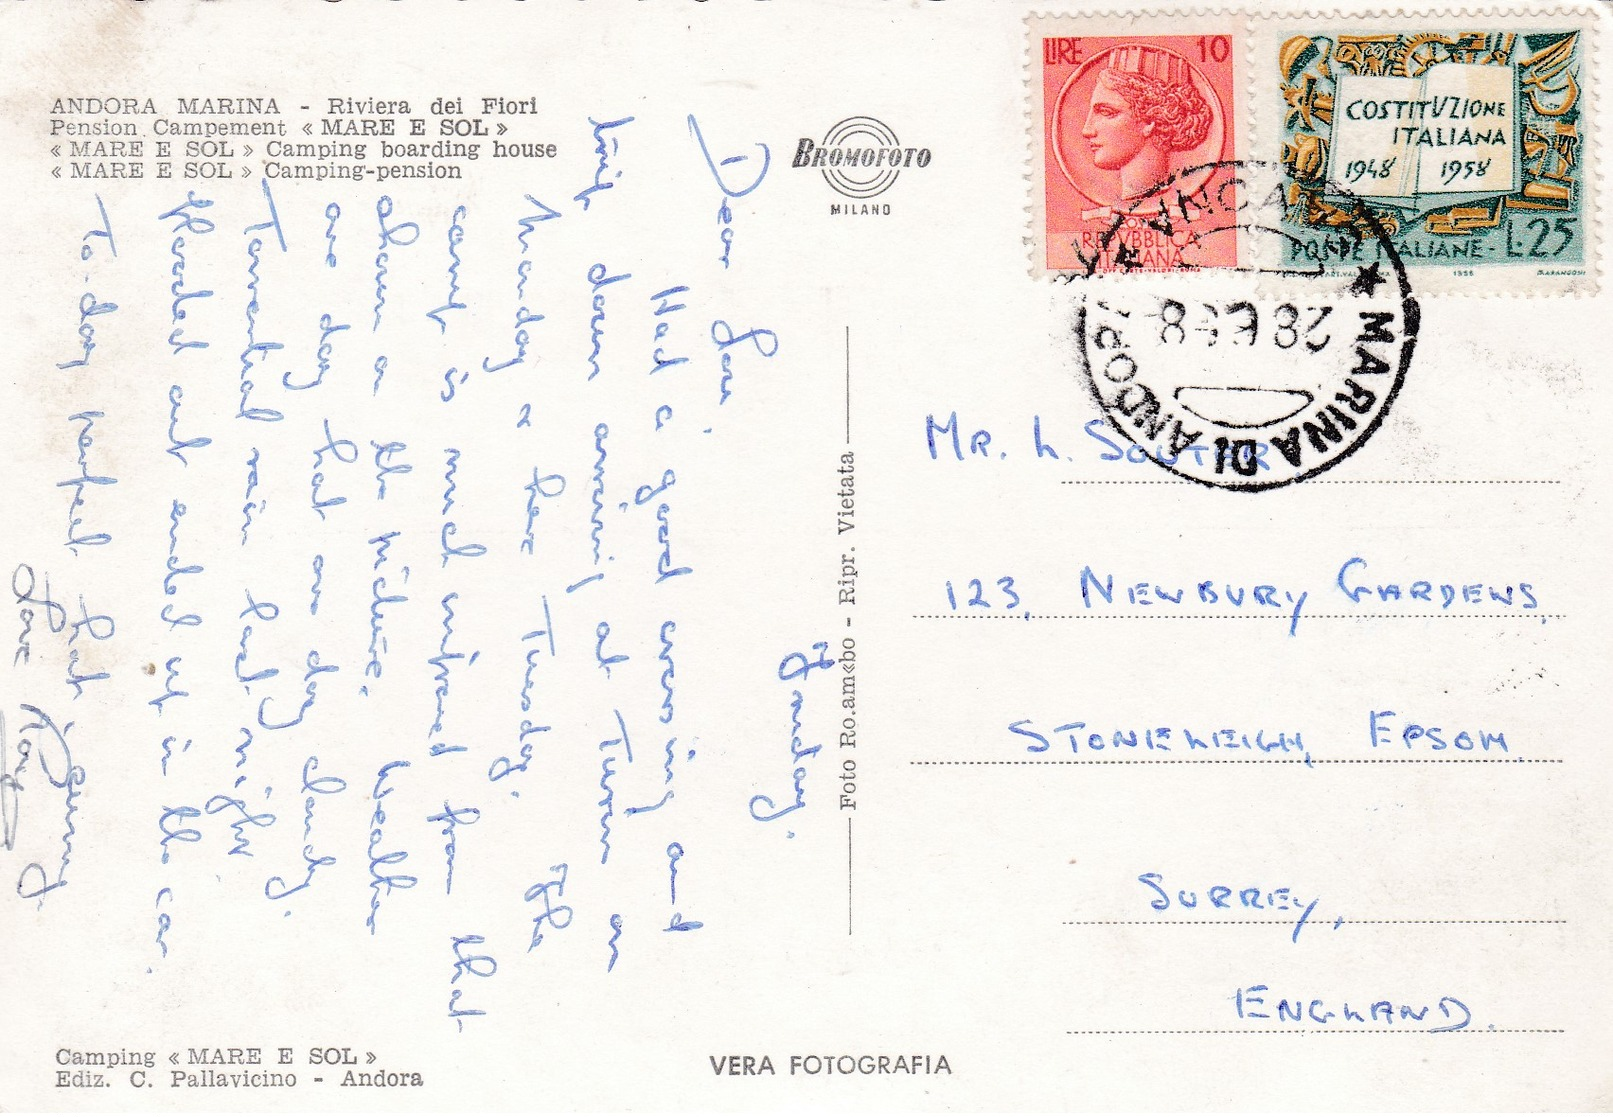 ANDORA MARINA - Riviera dei Fiori
Pension Campement « MARE E SOL »
« MARE E SOL » Camping boarding house
« MARE E SOL » Camping-pension
BROMOFOTO
MILANO
LIRE 10
POSTE
REPVBBLICA
ITALIANA
COSTITVZIONE
ITALIANA
1948 1958
POSTE ITALIANE - L.25
MARINA DI ANDORA
28 8
Sunday.
Dear Lou,
Had a good crossing and
trip down arriving at Turin on
Monday & here Tuesday. The
camp is much improved from that
shown on the picture. Weather
one day hot one day cloudy.
Torrential rain last night
flooded out ended up in the car.
To-day perfect hot & sunny.
Love Tony
Foto Ro.am«bo - Ripr. Vietata
MR. L. SOUTER,
123, NEWBURY GARDENS,
STONELEIGH, EPSOM,
SURREY,
ENGLAND.
Camping « MARE E SOL »
Ediz. C. Pallavicino - Andora
VERA FOTOGRAFIA